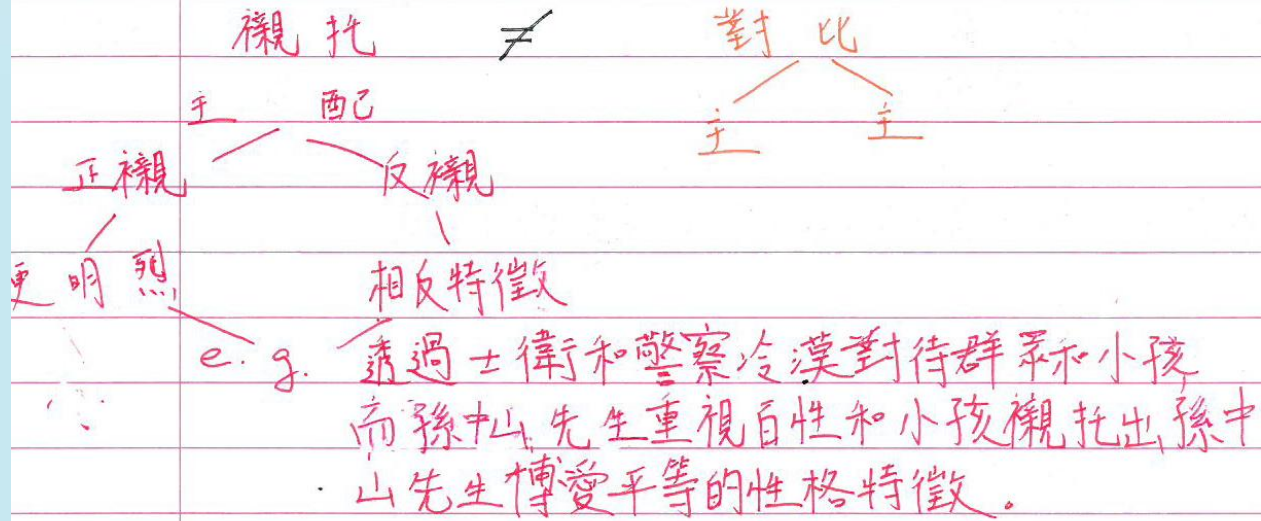 襯托 ≠ 對比
主 配
主 主
正襯 反襯
更明烈 相反特徵
e.g. 透過士衛和警察冷漠對待群眾和小孩
而孫中山先生重視百性和小孩襯托出孫中
山先生博愛平等的性格特徵。